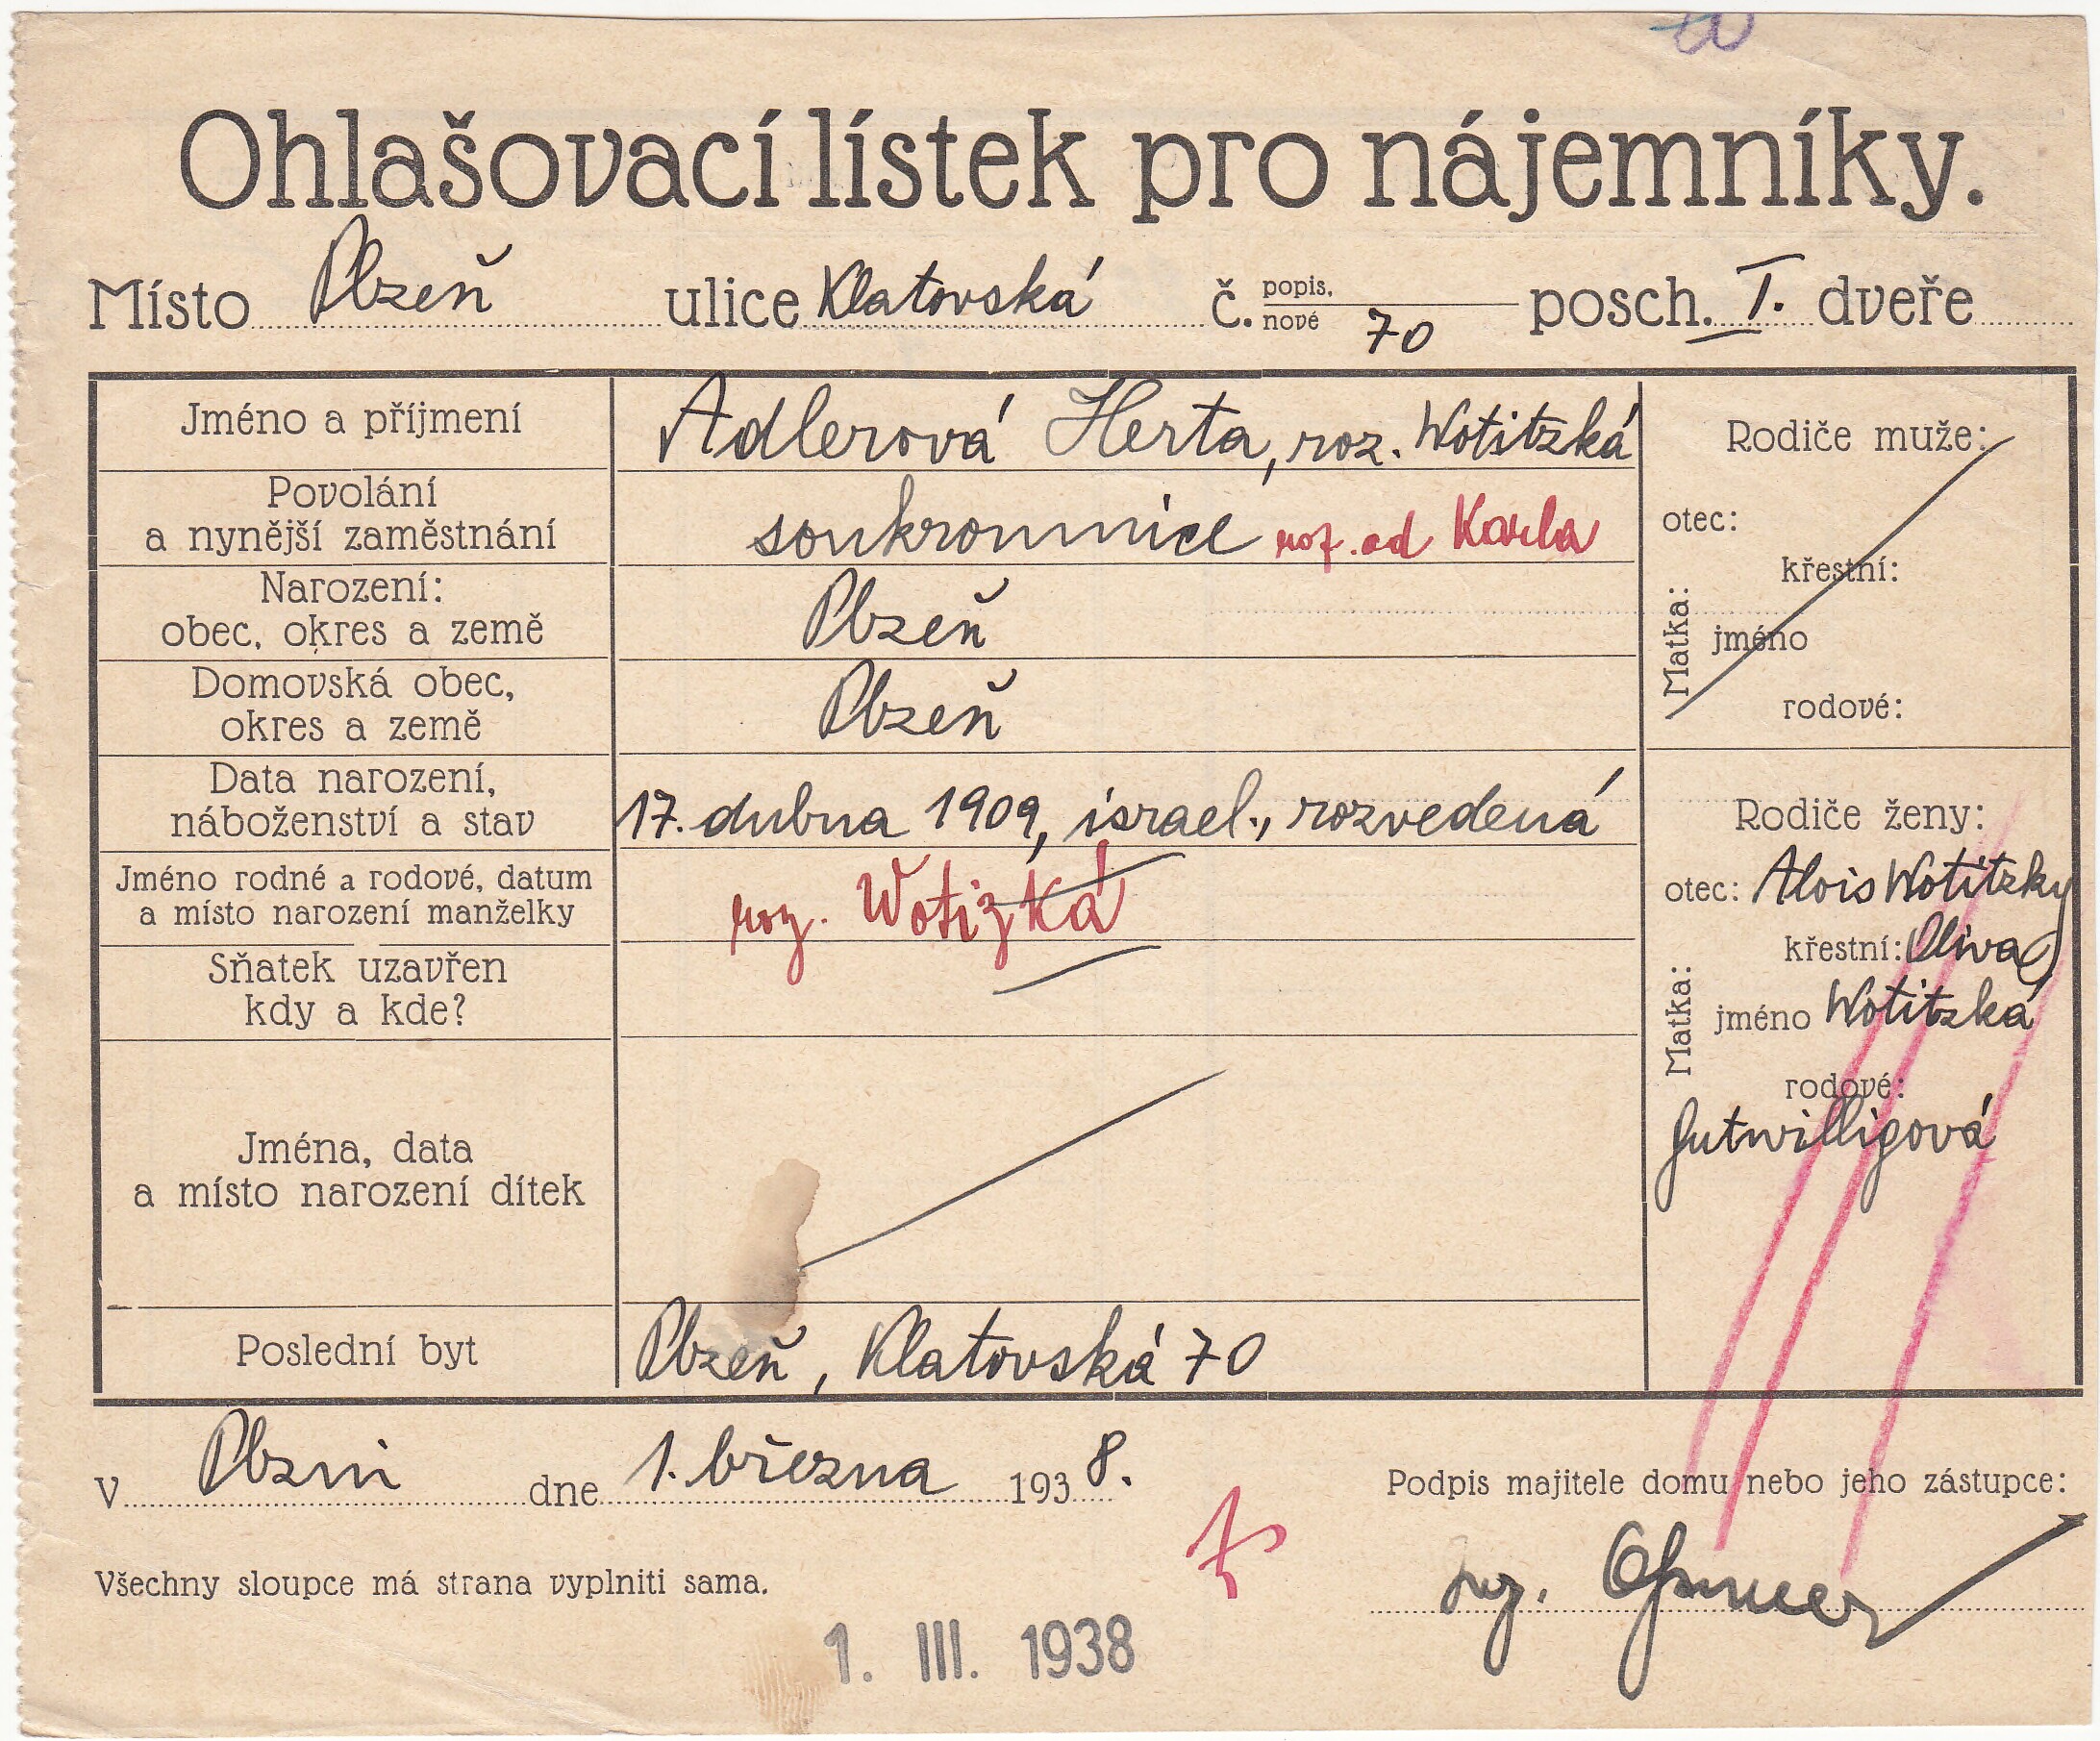 Ohlašovací lístek pro nájemníky.
Místo Plzeň ulice Klatovská č. popis. nové 70 posch. I. dveře
Jméno a příjmení
Adlerová Herta, roz. Wotitzká
Povolání
a nynější zaměstnání
soukromnice roz. od Karla
Narození:
obec, okres a země
Plzeň
Domovská obec,
okres a země
Plzeň
Data narození,
náboženství a stav
17. dubna 1909, israel., rozvedená
Jméno rodné a rodové, datum
a místo narození manželky
roz. Wotizká
Sňatek uzavřen
kdy a kde?
Jména, data
a místo narození dítek
Poslední byt
Plzeň, Klatovská 70
Rodiče muže:
otec:
Matka:
křestní:
jméno
rodové:
Rodiče ženy:
otec: Alois Wotitzky
Matka:
křestní: Oliva
jméno Wotitzká
rodové:
Gutwilligová
V Plzni dne 1. března 1938.
Podpis majitele domu nebo jeho zástupce:
Všechny sloupce má strana vyplniti sama.
Ing.
1. III. 1938